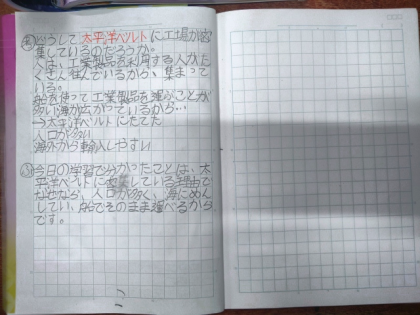 どうして太平洋ベルトに工場が密
集しているのだろうか。
は、工業製品を利用する人がた
くさん住んでいるから、集まって
いる。
船を使って工業製品を運ぶことが
多い海が広がっているから…
→太平洋ベルトにたてた
人口が多い
海外から輸入しやすい
今日の学習で分かったことは、太
平洋ベルトに密集している理由で
なぜなら、人口が多く、海にめん
してい、船でそのまま運べるから
です。